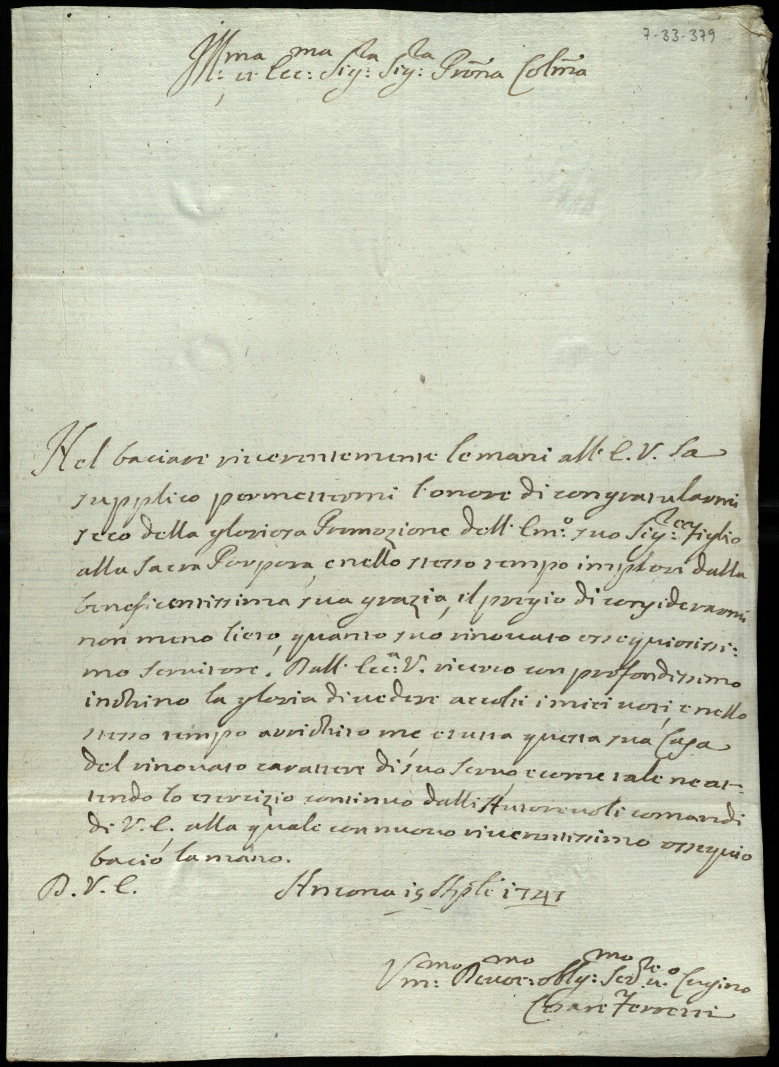 7-33-379
Ill:ma ed Ecc:ma Sig:ra Sig:ra Pro͞na Col͞ma
Nel baciare riverentemente le mani all'E. V. la
supplico permettermi l'onore di congratularmi
seco della gloriosa Promozione dell'Em:o suo Sig:re figlio
alla Sacra Porpora, e nello stesso tempo implori dalla
beneficentissima sua grazia, il pregio di considerarmi
non meno lieto, quanto suo rinovato ossequiosissi:
mo servitore. Dall'Ecc:a V. ricevo con profondissimo
inchino la gloria di vedere accolti i miei voti, e nello
stesso tempo arrichito me e tutta questa sua Casa
del rinovato carattere di suo servo, e come tale ne at-
tendo lo esercizio continuo dalli Autorevoli comandi
di V. E. alla quale con nuovo riverentissimo ossequio
bacio la mano.
D. V. E. Ancona 19 Aple 1741
Um:mo Devot:mo obblg:mo Ser:re e Cugino
Cesare